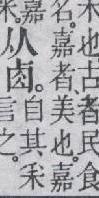 木也古者民食
名。嘉者、美也。嘉
嘉
米。
从卤。
自其禾
言之。